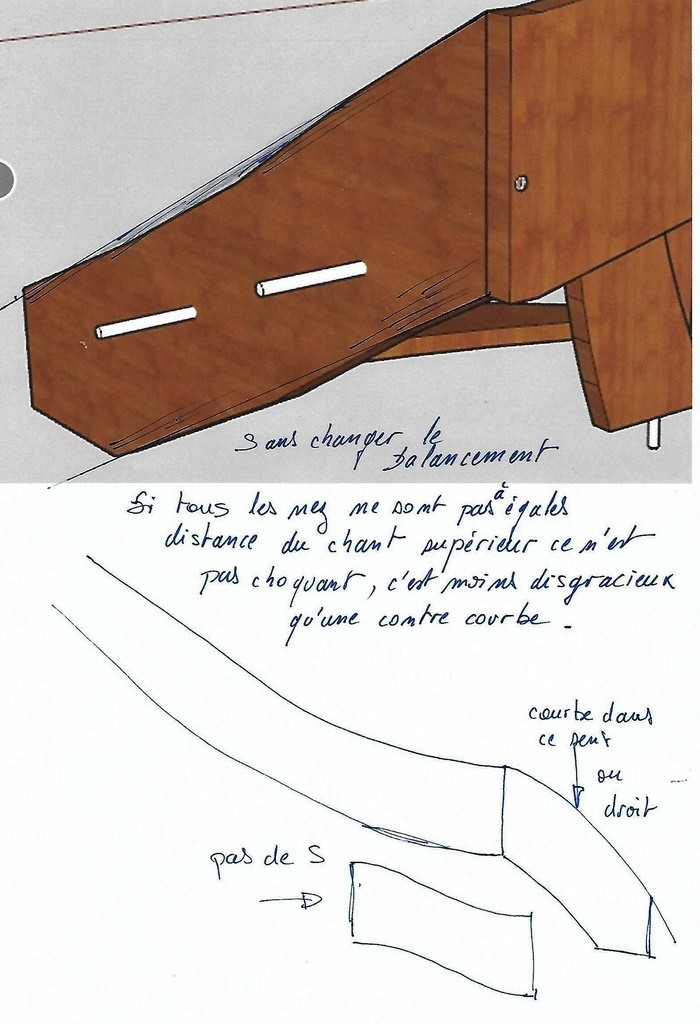 sans changer le
balancement
Si tous les nez ne sont pas à égales
distance du chant supérieur ce n'est
pas choquant, c'est moins disgracieux
qu'une contre courbe.
courbe dans
ce sens
ou
droit
pas de S